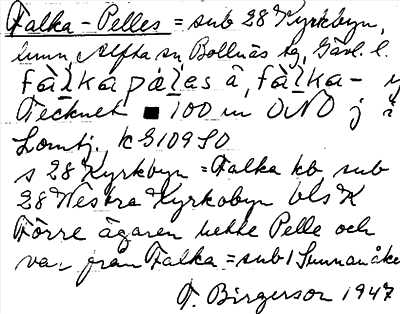 Falka-Pelles = sub 28 Kyrkbyn,
Alfta sn, Bollnäs tg, Gävl. l.
fàlkapàles å, fàlka-
Tecknet ■ 100 m ONO j
Lomtj. kS 109 SO
s 28 Kyrkbyn = Falka kb, sub
28 Westra Kyrkobyn bls K
Förre ägaren hette Pelle och
var från Falka = sub 1 Sunnanåke
F. Birgerson 1947